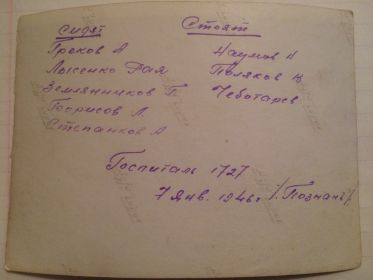 Сидят
Греков А
Лысенко Рая
Землянников Г
Борисов Л.
Степанков А
Стоят
Наумов А
Поляков В
Чеботарев
Госпиталь 1727
7 янв. 1946 г /г. Познань/.